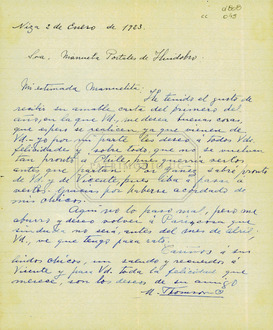 Niza 2 de Enero de 1923.
Sra. Manuela Portales de Huidobro
Mi estimada Manuelita,
He tenido el gusto de
recibir su amable carta del primero del
año, en la que Vd. me desea buenas cosas,
que espero se realicen ya que vienen de
Vd. Yo por mi parte les deseo a todos Vds.
felicidades y sobre todo que no se vuelvan
tan pronto a Chile, pues querría verlos
antes que partan.
verlos. Gracias por haberse acordado de
mis chicos.
Aquí no lo paso mal, pero me
aburro y deseo volver a Paris, cosa que
sin duda no será antes del mes de Abril;
Vd. ve que tengo para rato.
Cariños á sus
lindos chicos, un saludo y recuerdos á
Vicente y para Vd. toda la felicidad que
merece, son los deseos de su amigo
M. Thomson